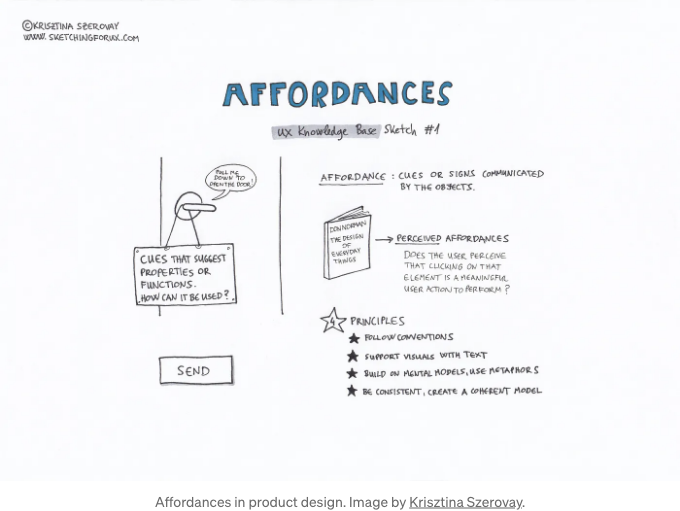 ©KRISZTINA SZEROVAY
WWW.SKETCHINGFORUX.COM
AFFORDANCES
UX Knowledge Base Sketch #1
PULL ME
DOWN TO
OPEN THE DOOR!
CUES THAT SUGGEST
PROPERTIES OR
FUNCTIONS.
HOW CAN IT BE USED?
SEND
AFFORDANCE : CUES OR SIGNS COMMUNICATED
BY THE OBJECTS.
DON NORMAN:
THE DESIGN
OF
EVERYDAY
THINGS
PERCEIVED AFFORDANCES
DOES THE USER PERCEIVE
THAT CLICKING ON THAT
ELEMENT IS A MEANINGFUL
USER ACTION TO PERFORM?
4 PRINCIPLES
FOLLOW CONVENTIONS
SUPPORT VISUALS WITH TEXT
BUILD ON MENTAL MODELS, USE METAPHORS
BE CONSISTENT, CREATE A COHERENT MODEL
Affordances in product design. Image by Krisztina Szerovay.